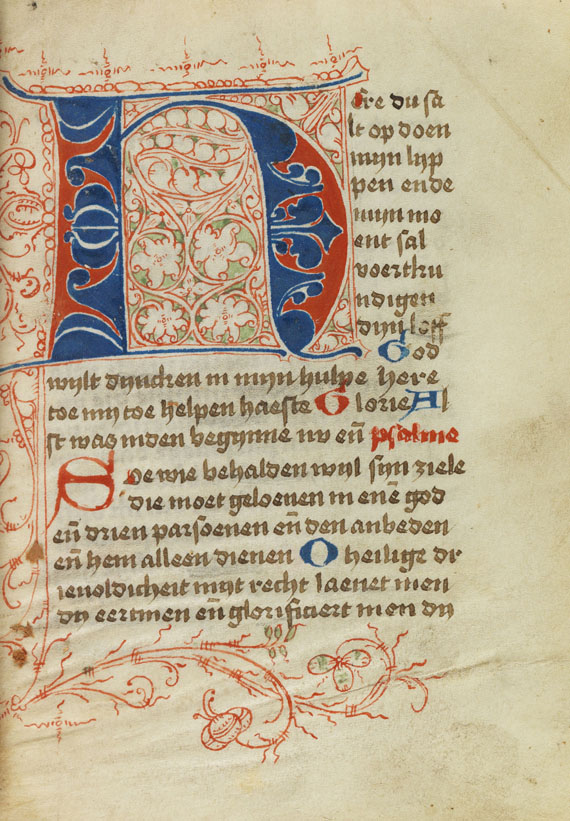 Here du sa
lt op doen
mijn lijp
pen ende
mijn mo
ent sal
voerthu
ndigen
dijn loff
God
wijlt dyncken in mijn hulpe here
toe mij toe helpen haeste Glorie Al
st was inden begynne nv eñ psalme
Soe wie behalden wijl sijn ziele
die moet geloeuen in enē god
eñ drien parsōenen eñ den anbeden
eñ hem alleen dienen O heilige dr
ieuoldicheit mijt recht laeuet men
dij eertmen eñ glorificiert men dij